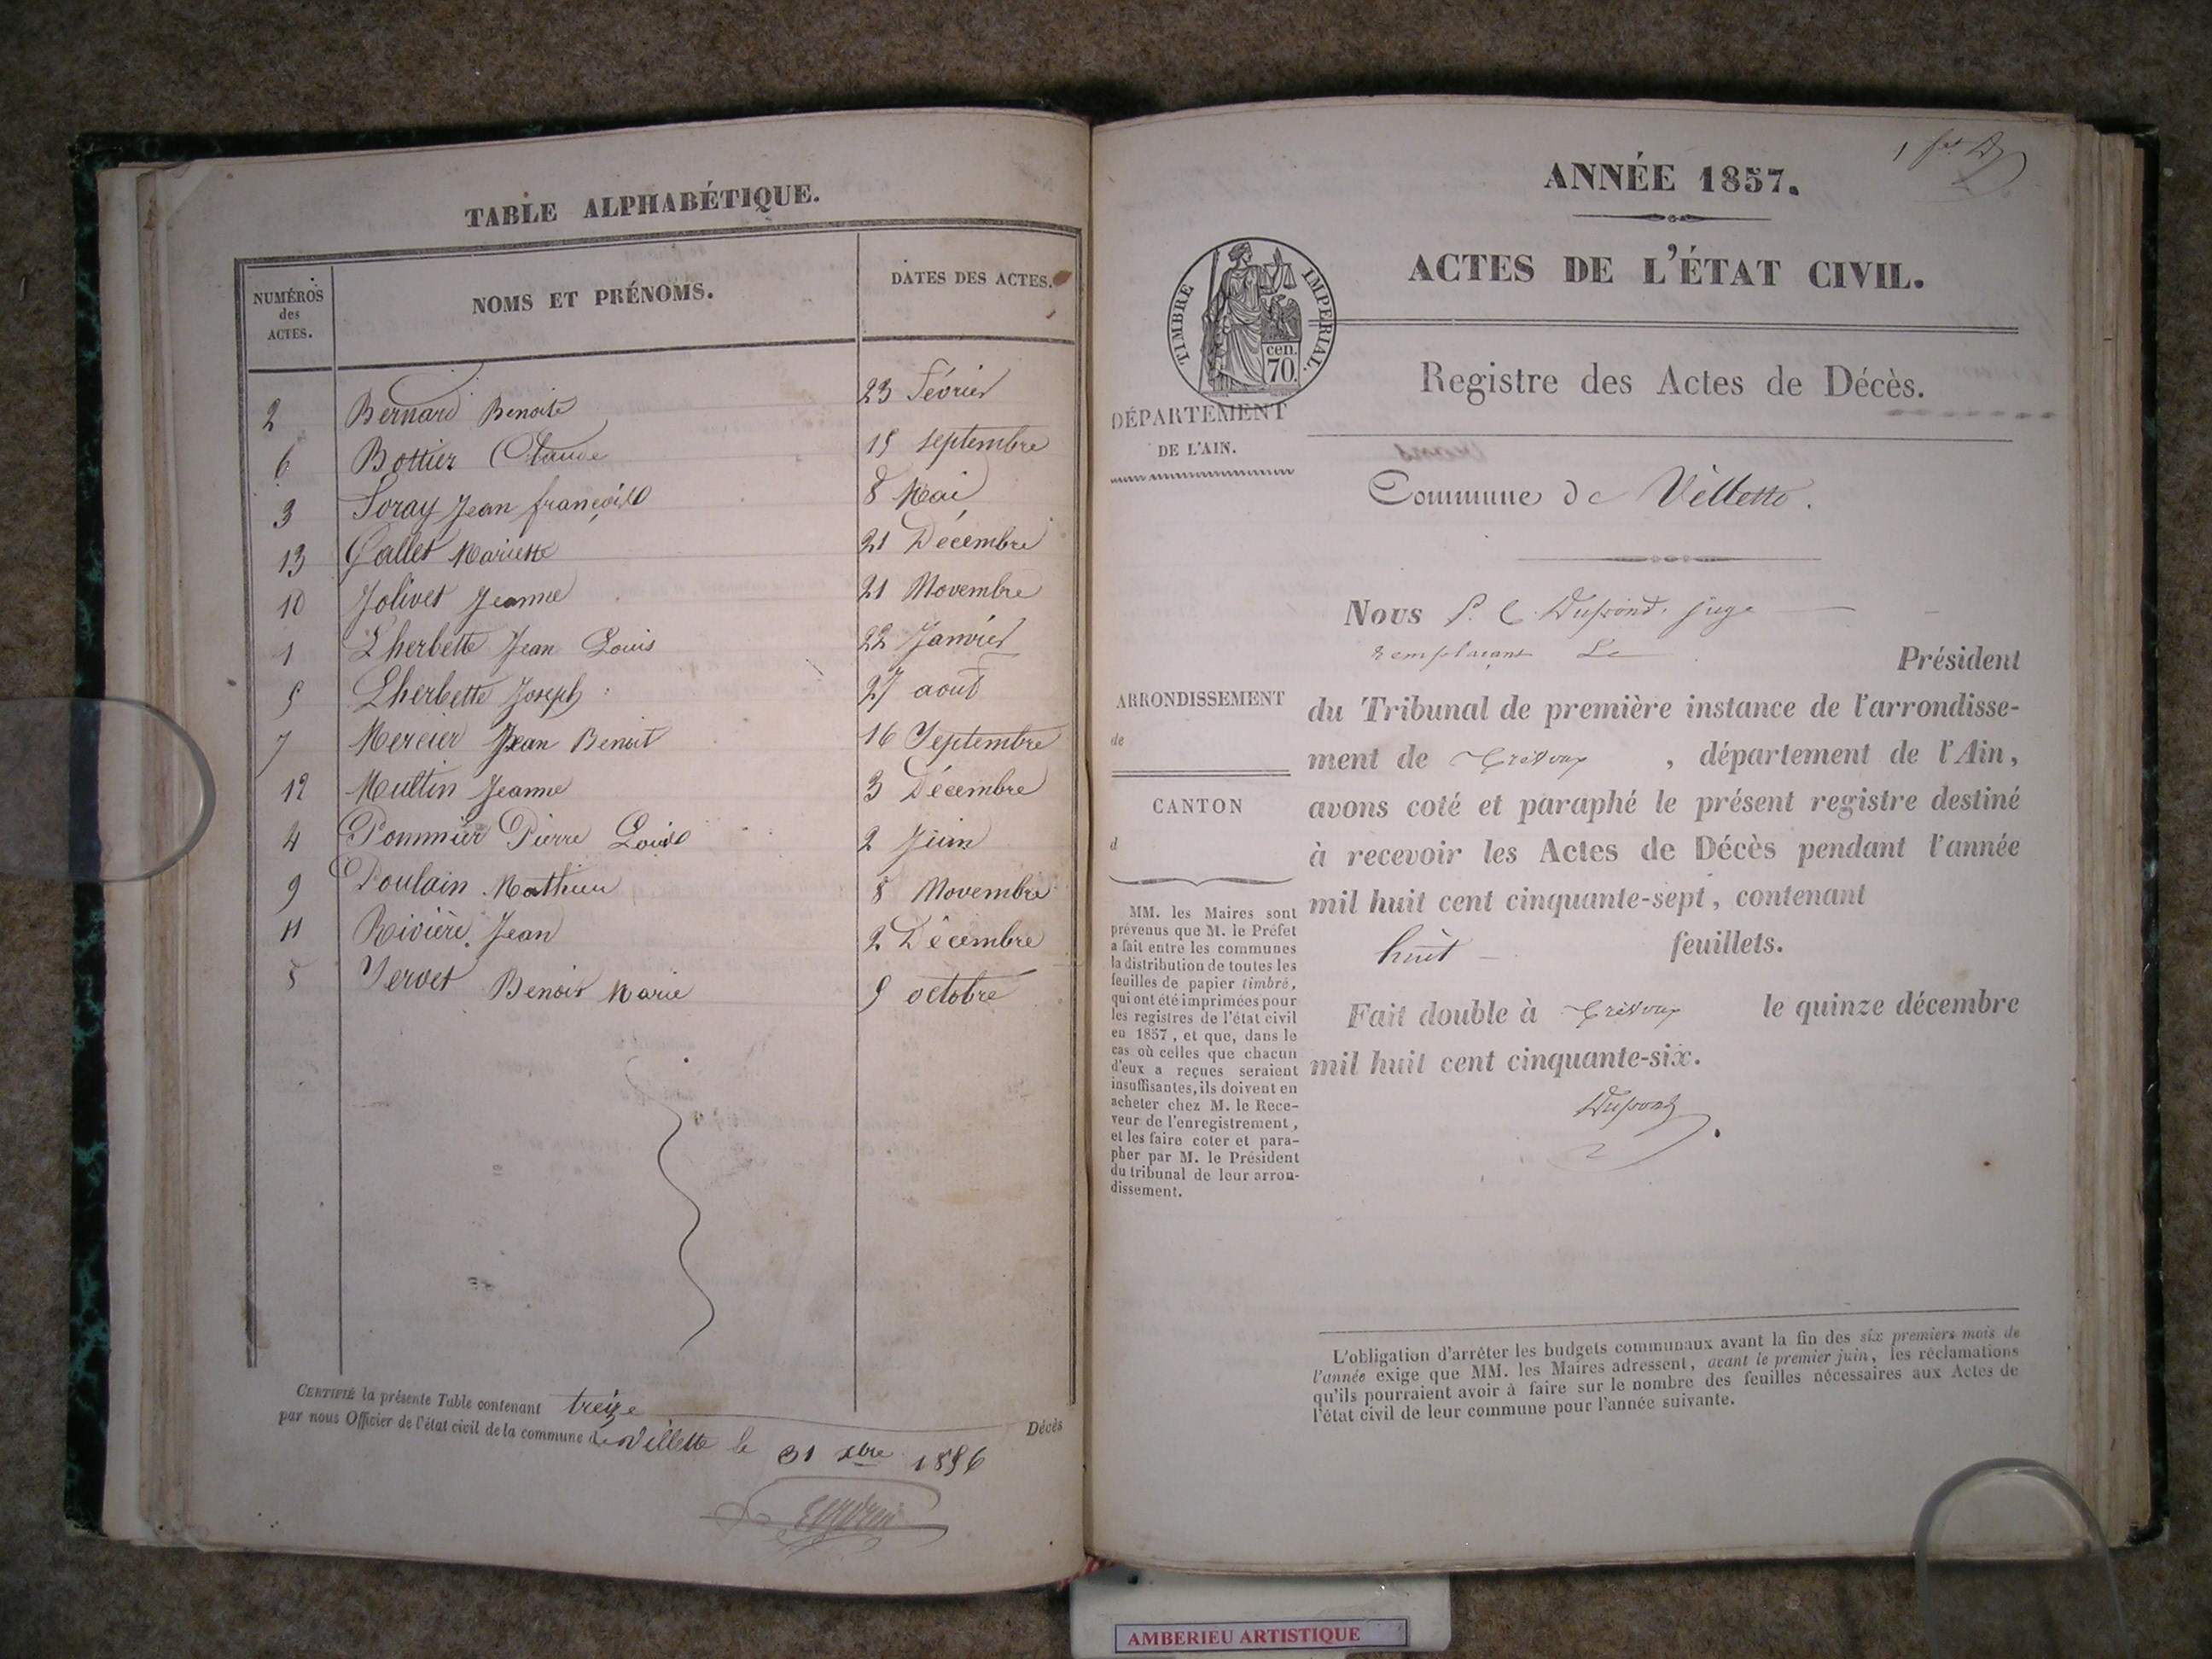 TABLE ALPHABÉTIQUE.
NUMÉROS
des
ACTES.
NOMS ET PRÉNOMS.
DATES DES ACTES.
2 Bernard Benoite 23 Février
6 Bottier Claude 15 septembre
3 Foray Jean françois 8 Mai
13 Gallet Mariette 21 Décembre
10 Jolivet Jeanne 21 Novembre
1 Lherbette Jean Louis 22 Janvier
5 Lherbette Joseph 27 aout
7 Mercier Jean Benoit 16 Septembre
12 Multin Jeanne 3 Décembre
4 Pommier Pierre Louis 2 Juin
9 Poulain Mathieu 8 Novembre
11 Rivière Jean 2 Décembre
8 Servet Benoit Marie 9 octobre
CERTIFIÉ la présente Table contenant treize Décès
par nous Officier de l'état civil de la commune de Villette le 31 xbre 1856
1 fet
ANNÉE 1857.
ACTES DE L'ÉTAT CIVIL.
TIMBRE IMPÉRIAL.
cen.
70.
Registre des Actes de Décès.
DÉPARTEMENT
DE L'AIN.
Commune de Villette.
Nous P. C. Dupond, juge
remplaçant Le Président
du Tribunal de première instance de l'arrondisse-
ment de Trévoux, département de l'Ain,
avons coté et paraphé le présent registre destiné
à recevoir les Actes de Décès pendant l'année
mil huit cent cinquante-sept, contenant
huit feuillets.
Fait double à Trévoux le quinze décembre
mil huit cent cinquante-six.
Dupond
ARRONDISSEMENT
de
CANTON
d
MM. les Maires sont
prévenus que M. le Préfet
a fait entre les communes
la distribution de toutes les
feuilles de papier timbré,
qui ont été imprimées pour
les registres de l'état civil
en 1857, et que, dans le
cas où celles que chacun
d'eux a reçues seraient
insuffisantes, ils doivent en
acheter chez M. le Rece-
veur de l'enregistrement,
et les faire coter et para-
pher par M. le Président
du tribunal de leur arron-
dissement.
L'obligation d'arrêter les budgets communaux avant la fin des six premiers mois de
l'année exige que MM. les Maires adressent, avant le premier juin, les réclamations
qu'ils pourraient avoir à faire sur le nombre des feuilles nécessaires aux Actes de
l'état civil de leur commune pour l'année suivante.
AMBERIEU ARTISTIQUE